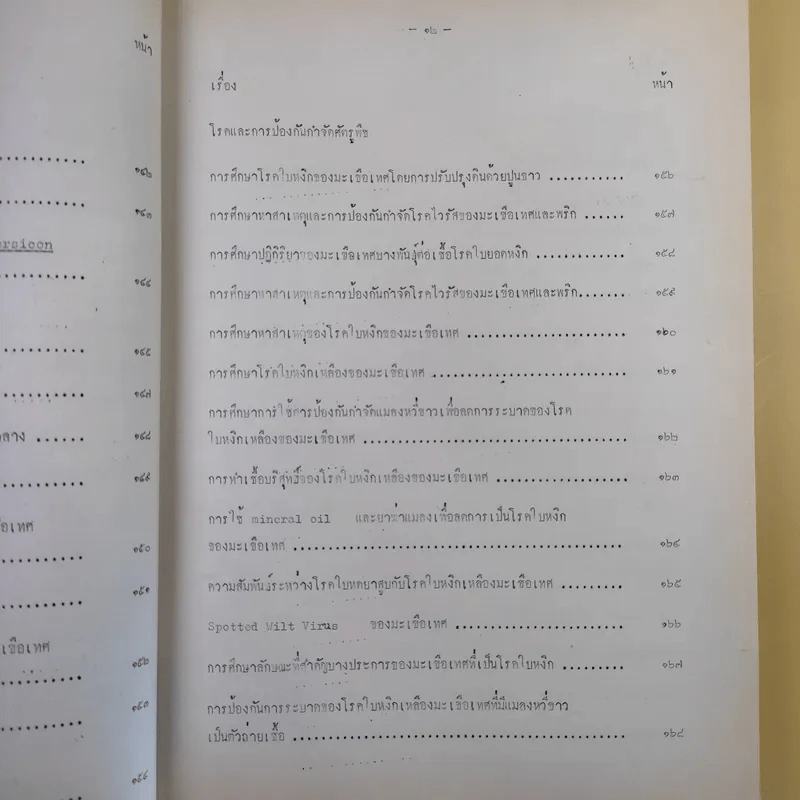 หน้า
๑๔๒
๑๔๓
ersicon
๑๔๔
๑๔๕
๑๔๗
ลาง ...... ๑๔๘
๑๔๙
อเทศ
๑๕๐
๑๕๑
เขือเทศ
๑๕๒
๑๕๓
๑๕๔
- ๑๒ -
เรื่อง หน้า
โรคและการป้องกันกำจัดศัตรูพืช
การศึกษาโรคใบหงิกของมะเขือเทศโดยการปรับปรุงดินด้วยปูนขาว ........... ๑๕๖
การศึกษาหาสาเหตุและการป้องกันกำจัดโรคไวรัสของมะเขือเทศและพริก ...... ๑๕๗
การศึกษาปฏิกิริยาของมะเขือเทศบางพันธุ์ต่อเชื้อโรคใบยอดหงิก ............. ๑๕๘
การศึกษาหาสาเหตุและการป้องกันกำจัดโรคไวรัสของมะเขือเทศและพริก....... ๑๕๙
การศึกษาหาสาเหตุของโรคใบหงิกของมะเขือเทศ ....................... ๑๖๐
การศึกษาโรคใบหงิกเหลืองของมะเขือเทศ ............................ ๑๖๑
การศึกษาการใช้สารป้องกันกำจัดแมลงหวี่ขาวเพื่อลดการระบาดของโรค
ใบหงิกเหลืองของมะเขือเทศ ...................................... ๑๖๒
การทำเชื้อบริสุทธิ์ของโรคใบหงิกเหลืองของมะเขือเทศ ................... ๑๖๓
การใช้ mineral oil และยาฆ่าแมลงเพื่อลดการเป็นโรคใบหงิก
ของมะเขือเทศ ................................................ ๑๖๔
ความสัมพันธ์ระหว่างโรคใบหดยาสูบกับโรคใบหงิกเหลืองมะเขือเทศ ......... ๑๖๕
Spotted Wilt Virus ของมะเขือเทศ ........................ ๑๖๖
การศึกษาลักษณะที่สำคัญบางประการของมะเขือเทศที่เป็นโรคใบหงิก ......... ๑๖๗
การป้องกันการระบาดของโรคใบหงิกเหลืองมะเขือเทศที่มีแมลงหวี่ขาว
เป็นตัวถ่ายเชื้อ ................................................ ๑๖๘